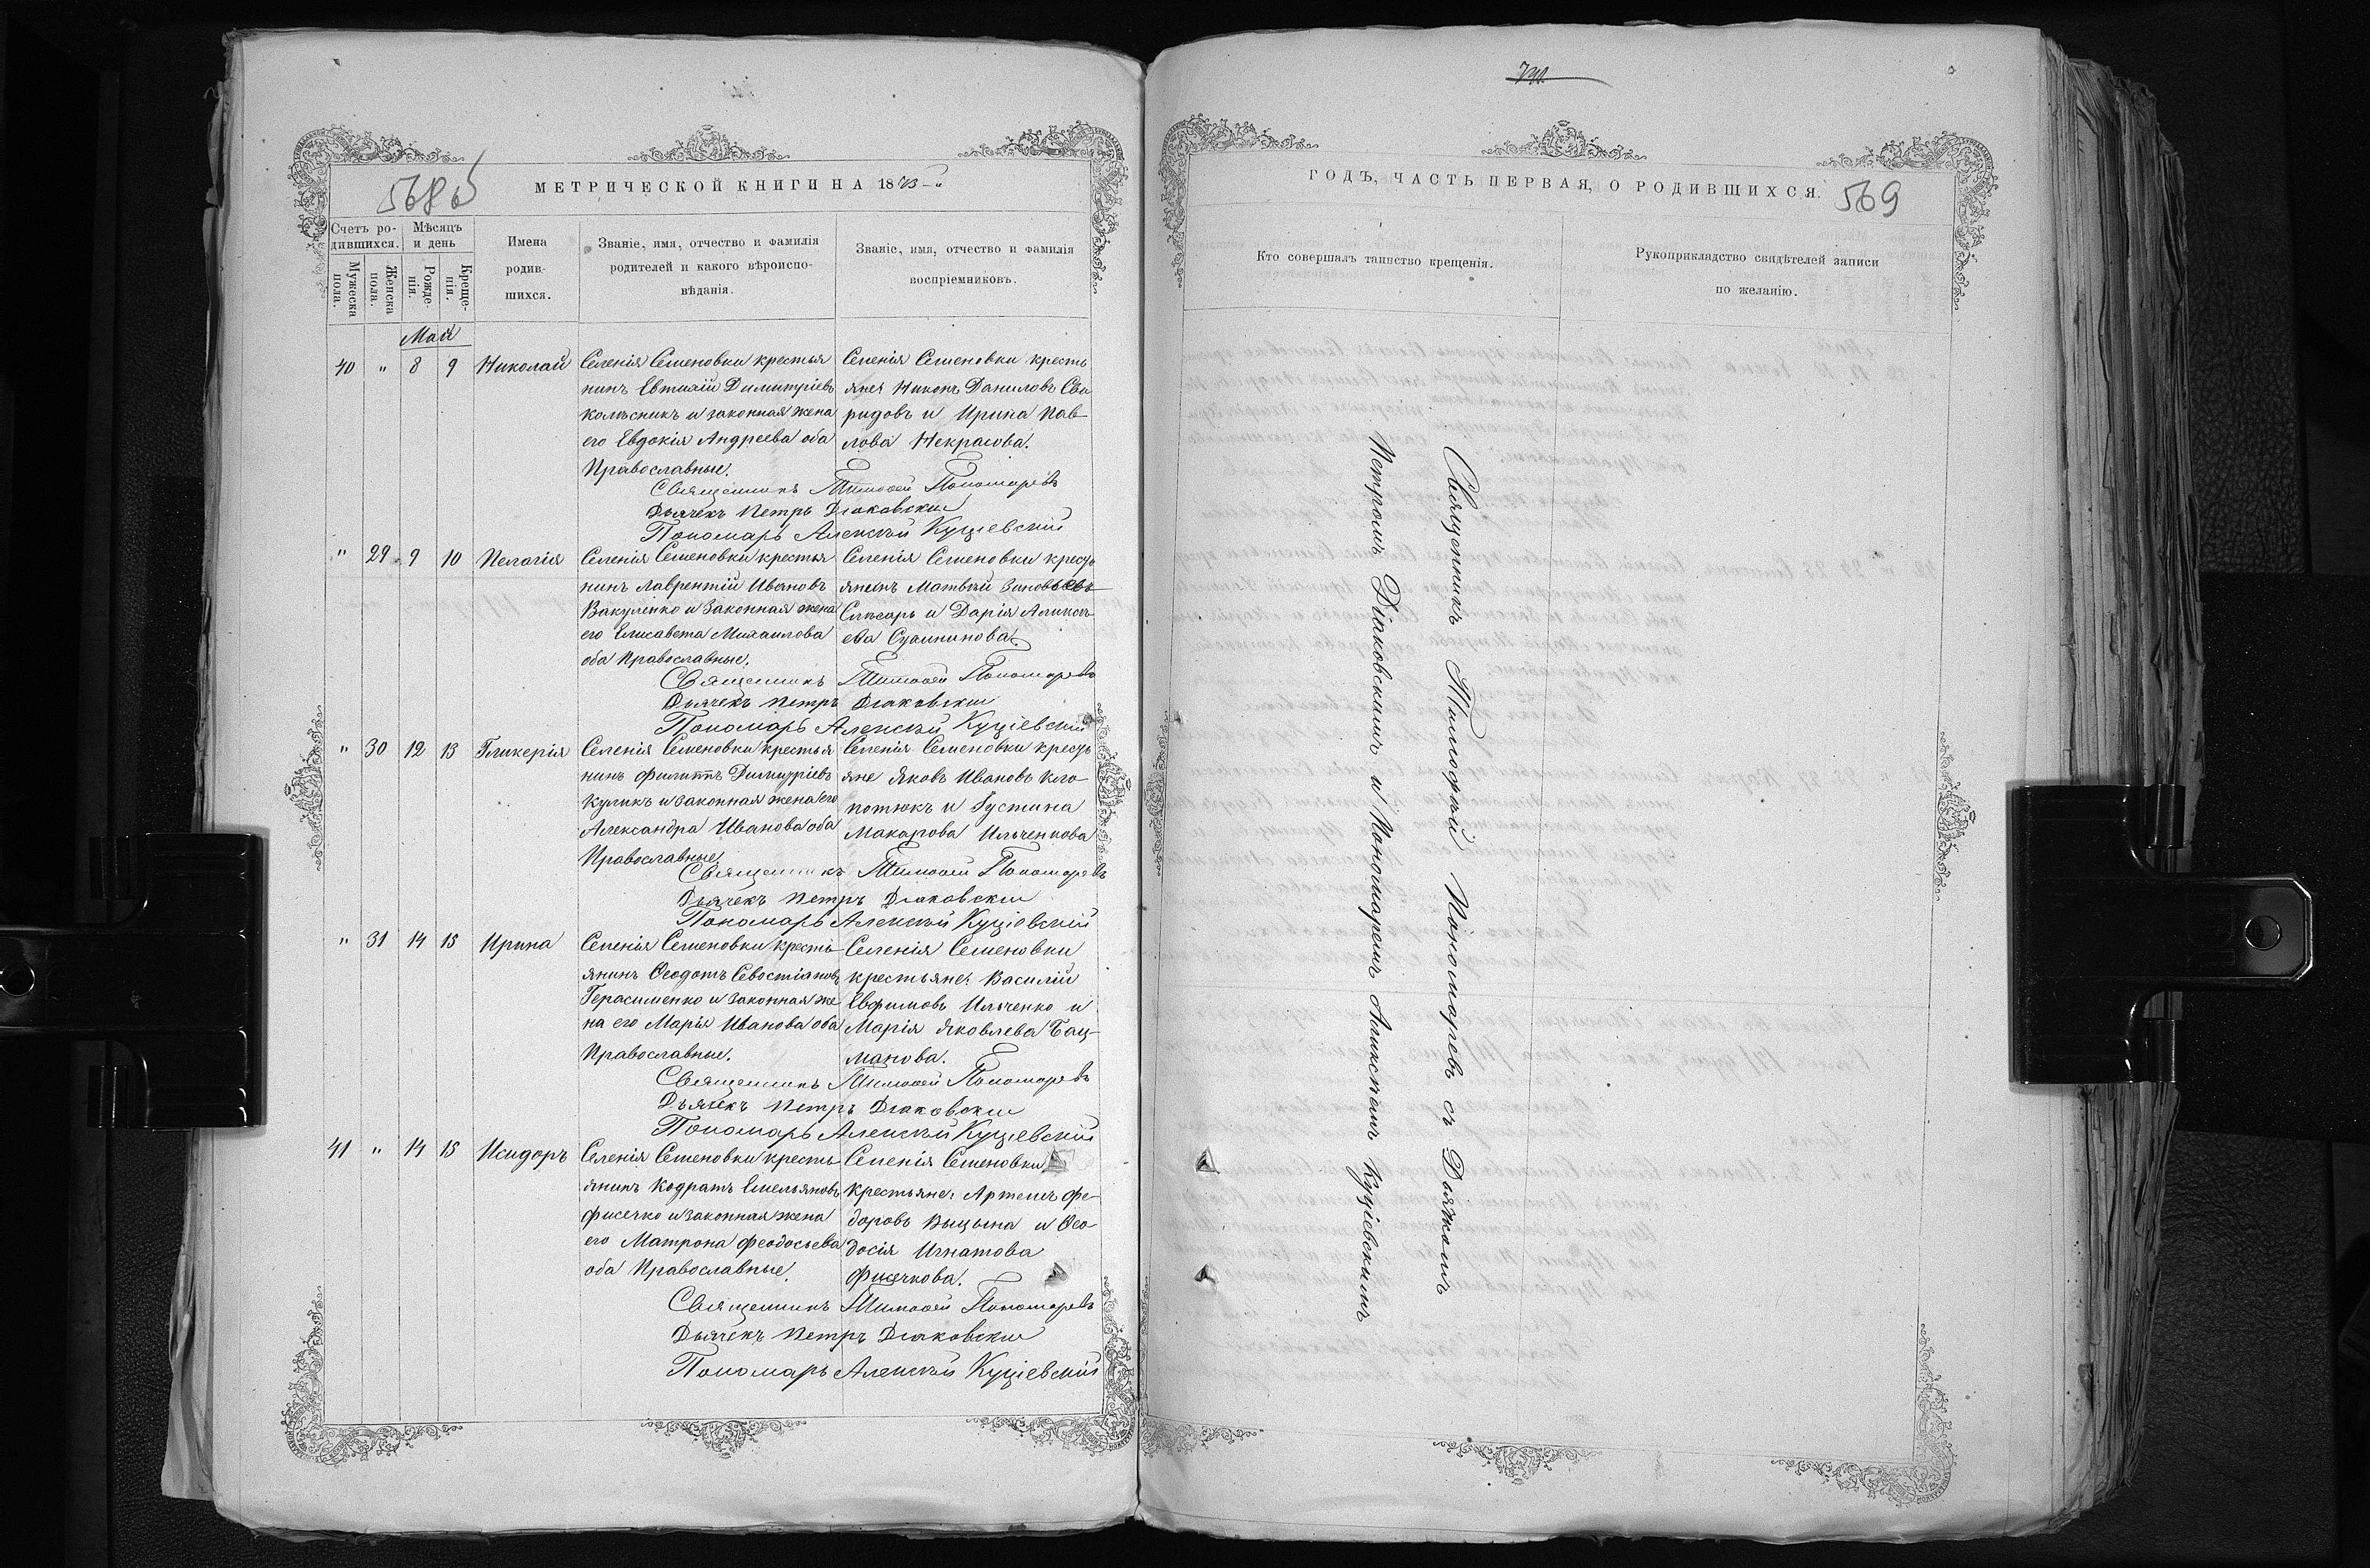 568 б
МЕТРИЧЕСКОЙ КНИГИ НА 1873-й
Счетъ родившихся.
Мѣсяцъ и день
Мужеска пола.
Женска пола.
Рожденія.
Крещенія.
Имена родившихся.
Званіе, имя, отчество и фамилія родителей и какого вѣроисповѣданія.
Званіе, имя, отчество и фамилія воспріемниковъ.
Май
40 " 8 9 Николай
Селенія Семеновки крестья
нинъ Евтихій Димитріевъ
Колѣсникъ и законная жена
его Евдокія Андреева оба
Православные.
Селенія Семеновки кресть
яне: Никонъ Даниловъ Сва
ридовъ и Ирина Пав-
лова Некрасова.
Священникъ Тимофей Пономаревъ
Дьячекъ Петръ Діаковскій
Пономарь Алексѣй Куціевскій
" 29 9 10 Пелагія
Селенія Семеновки крестья
нинъ Лаврентій Ивановъ
Вакуленко и законная жена
его Елисавета Михаилова
оба Православные.
Селенія Семеновки кресть
янинъ Матвѣй Зиновьевъ
Слѣсарь и Дарія Алексѣ-
ева
Священникъ Тимофей Пономаревъ
Дьячекъ Петръ Діаковскій
Пономарь Алексѣй Куціевскій
" 30 12 13 Гликерія
Селенія Семеновки крестья
нинъ Филиппъ Димитріевъ
Куликъ и законная жена его
Александра Иванова оба
Православные.
Селенія Семеновки кресть
яне Яковъ Ивановъ Кого-
потюкъ и Густина
Макарова Ильченкова
Священникъ Тимофей Пономаревъ
Дьячекъ Петръ Діаковскій
Пономарь Алексѣй Куціевскій
" 31 14 15 Ирина
Селенія Семеновки кресть
янинъ Ѳеодотъ Севостіановъ
Герасименко и законная же
на его Марія Иванова оба
Православные.
Селенія Семеновки
крестьяне: Василій
Евфимовъ Ильченко и
Марія Яковлева Бац-
манова.
Священникъ Тимофей Пономаревъ
Дьячекъ Петръ Діаковскій
Пономарь Алексѣй Куціевскій
41 " 14 15 Исидоръ
Селенія Семеновки кресть
янинъ Кодратъ Емельяновъ
Фисечко и законная жена
его Матрона Феодосьева
оба Православные.
Селенія Семеновки
крестьяне: Артемъ Фе-
доровъ Выцына и Ѳео-
досія Игнатова
Фисечкова.
Священникъ Тимофей Пономаревъ
Дьячекъ Петръ Діаковскій
Пономарь Алексѣй Куціевскій
ГОДЪ, ЧАСТЬ ПЕРВАЯ, О РОДИВШИХСЯ.
569
Кто совершалъ таинство крещенія.
Рукоприкладство свидѣтелей записи
по желанію.
Священникъ Тимофей Пономаревъ съ Дьячкомъ
Петромъ Діаковскимъ и Пономаремъ Алексѣемъ Куціевскимъ